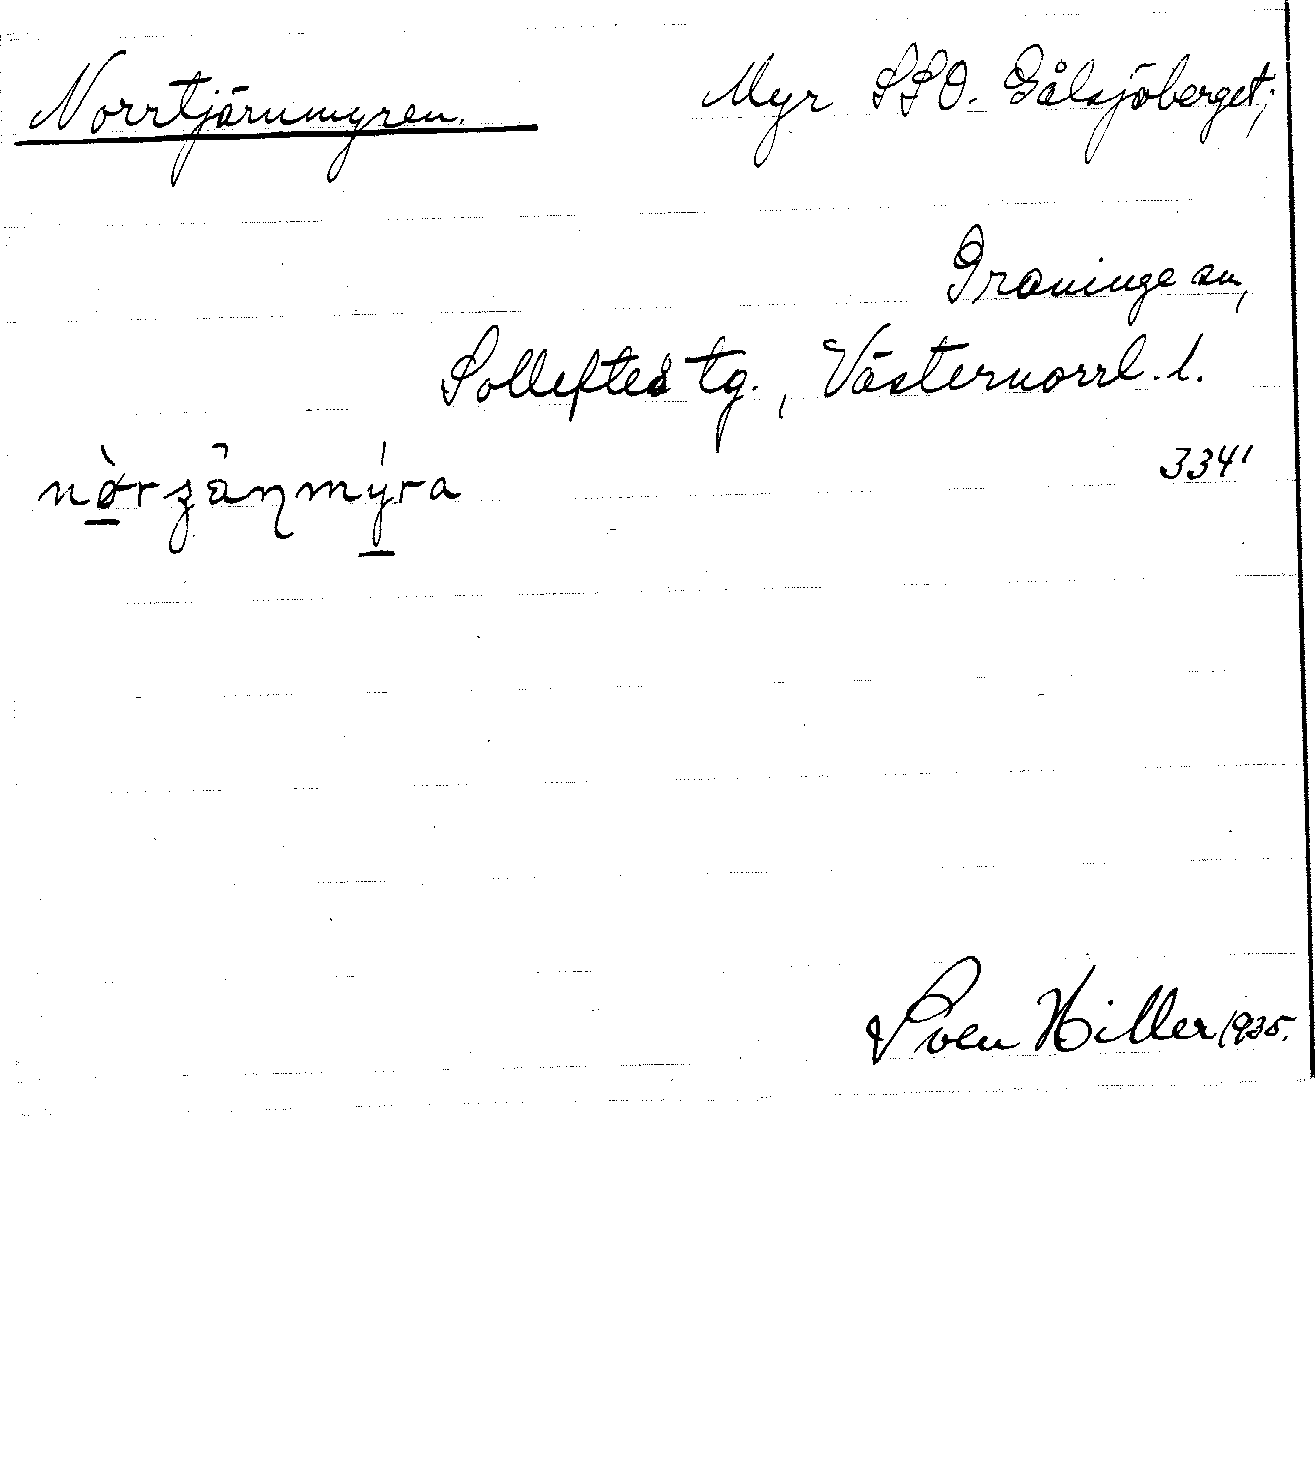 Norrtjärnmyren. Myr SSO. Gålsjöberget;
Graninge sn,
Sollefteå tg., Västernorrl. l.
3341
Sven Hiller 1935.